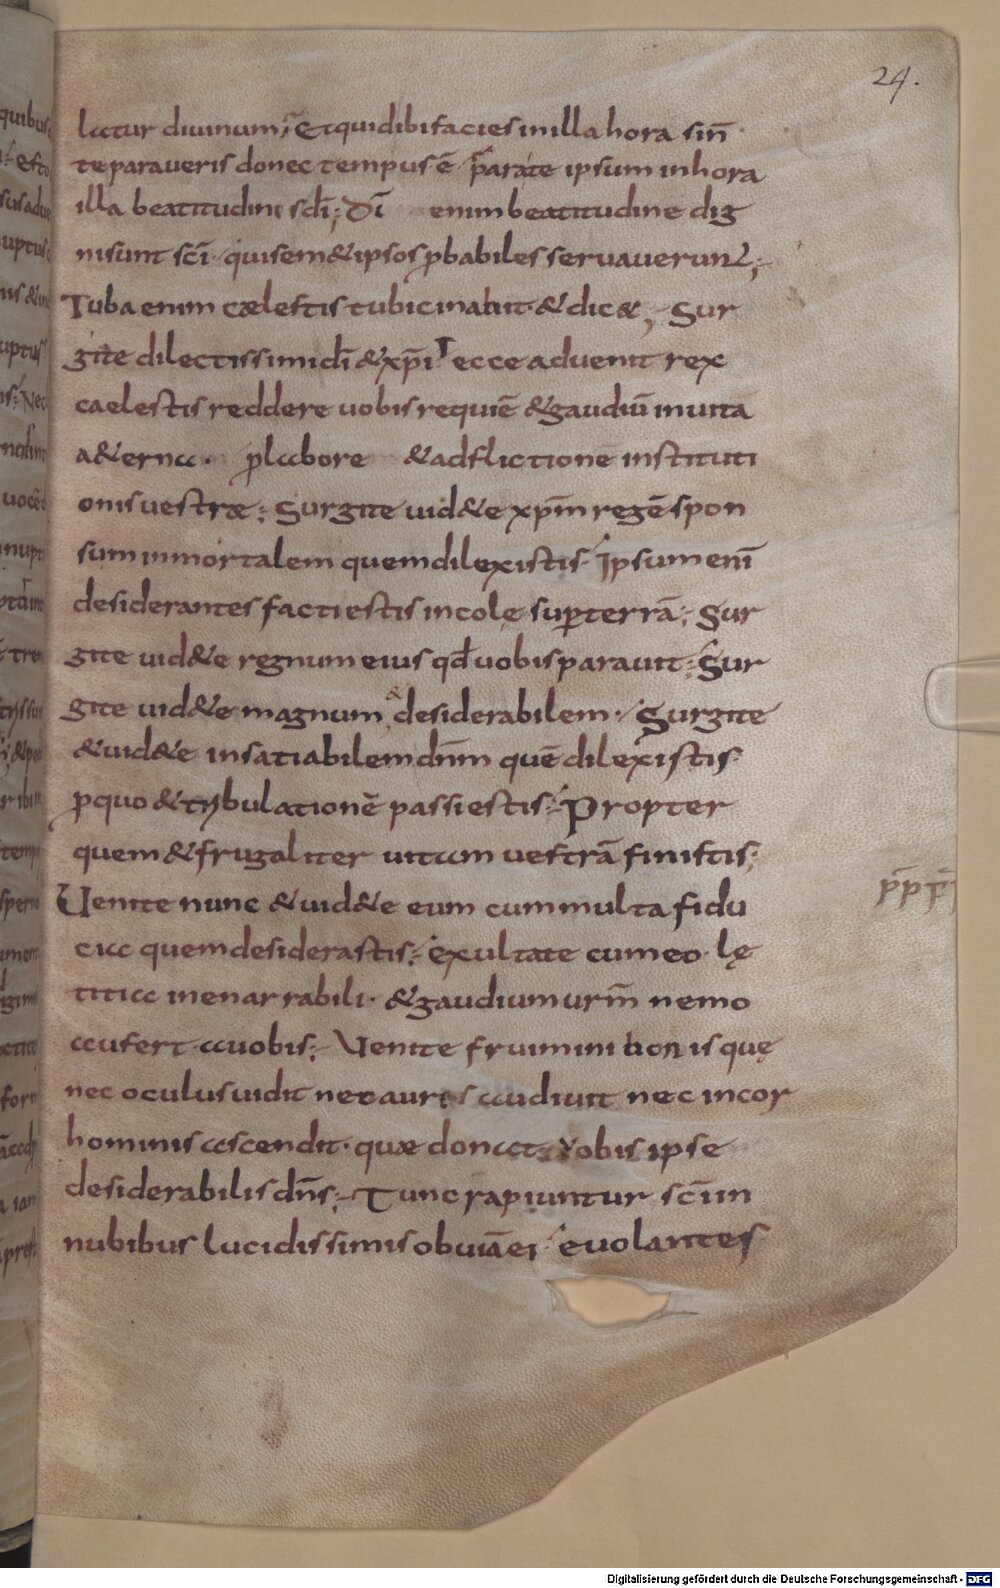 24.
latur diuinum; Et quid ibi facies in illa hora sin̄
te paraueris donec tempus ē p̄parate ipsum in hora
illa beatitudini sc̄i; Dī enim beatitudine dig
ni sunt sc̄i quisem& ipsos ꝓbabiles seruauerunt;
Tuba enim cælestis tubicinabit & dic&; Sur
gite dilectissimi dī & xp̄i ecce aduenit rex
caelestis reddere uobis requiē & gaudiū in uita
a&erna. ꝓ labore & adflictionē instituti
onis uestræ; Surgite uid&e xp̄m regē spon
sum inmortalem quem dilexistis. Ipsum enī
desiderantes facti estis incolę sup terrā; Sur
gite uid&e regnum eius qd̄ uobis parauit; Sur
gite uid&e magnum & desiderabilem; Surgite
& uid&e insatiabilem dn̄m quē dilexistis
ꝓ quo & trybulationē passi estis; Propter
quem & frugaliter uitam uestrā finistis;
Uenite nunc & uid&e eum cum multa fidu
cia quem desiderastis; exultate cum eo lę
titia inenarrabili. & gaudium urm̄ nemo
aufert a uobis; Uenite fruimini bonis quę
nec oculus uidit nec auris audiuit nec in cor
hominis ascendit. quæ donat uobis ipse
desiderabilis dn̄s; Tunc rapiuntur sc̄i in
nubibus lucidissimis obuiā ei euolantes
quibus
Digitalisierung gefördert durch die Deutsche Forschungsgemeinschaft - DFG